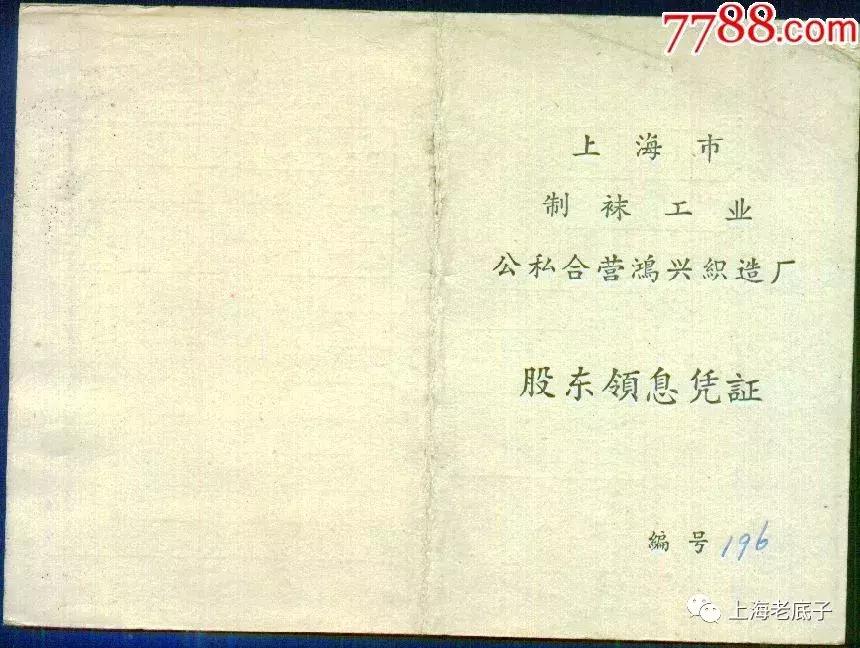 7788.com
上海市
制袜工业
公私合营鴻兴織造厂
股东領息凭証
編号196
上海老底子